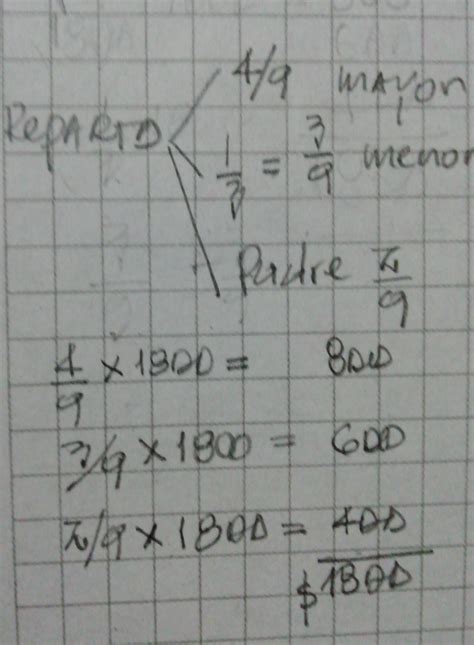 4/9 mayor
Reparto
1/3 = 3/9 menor
Padre 2/9
4/9 × 1800 = 800
3/9 × 1800 = 600
2/9 × 1800 = 400
$ 1800